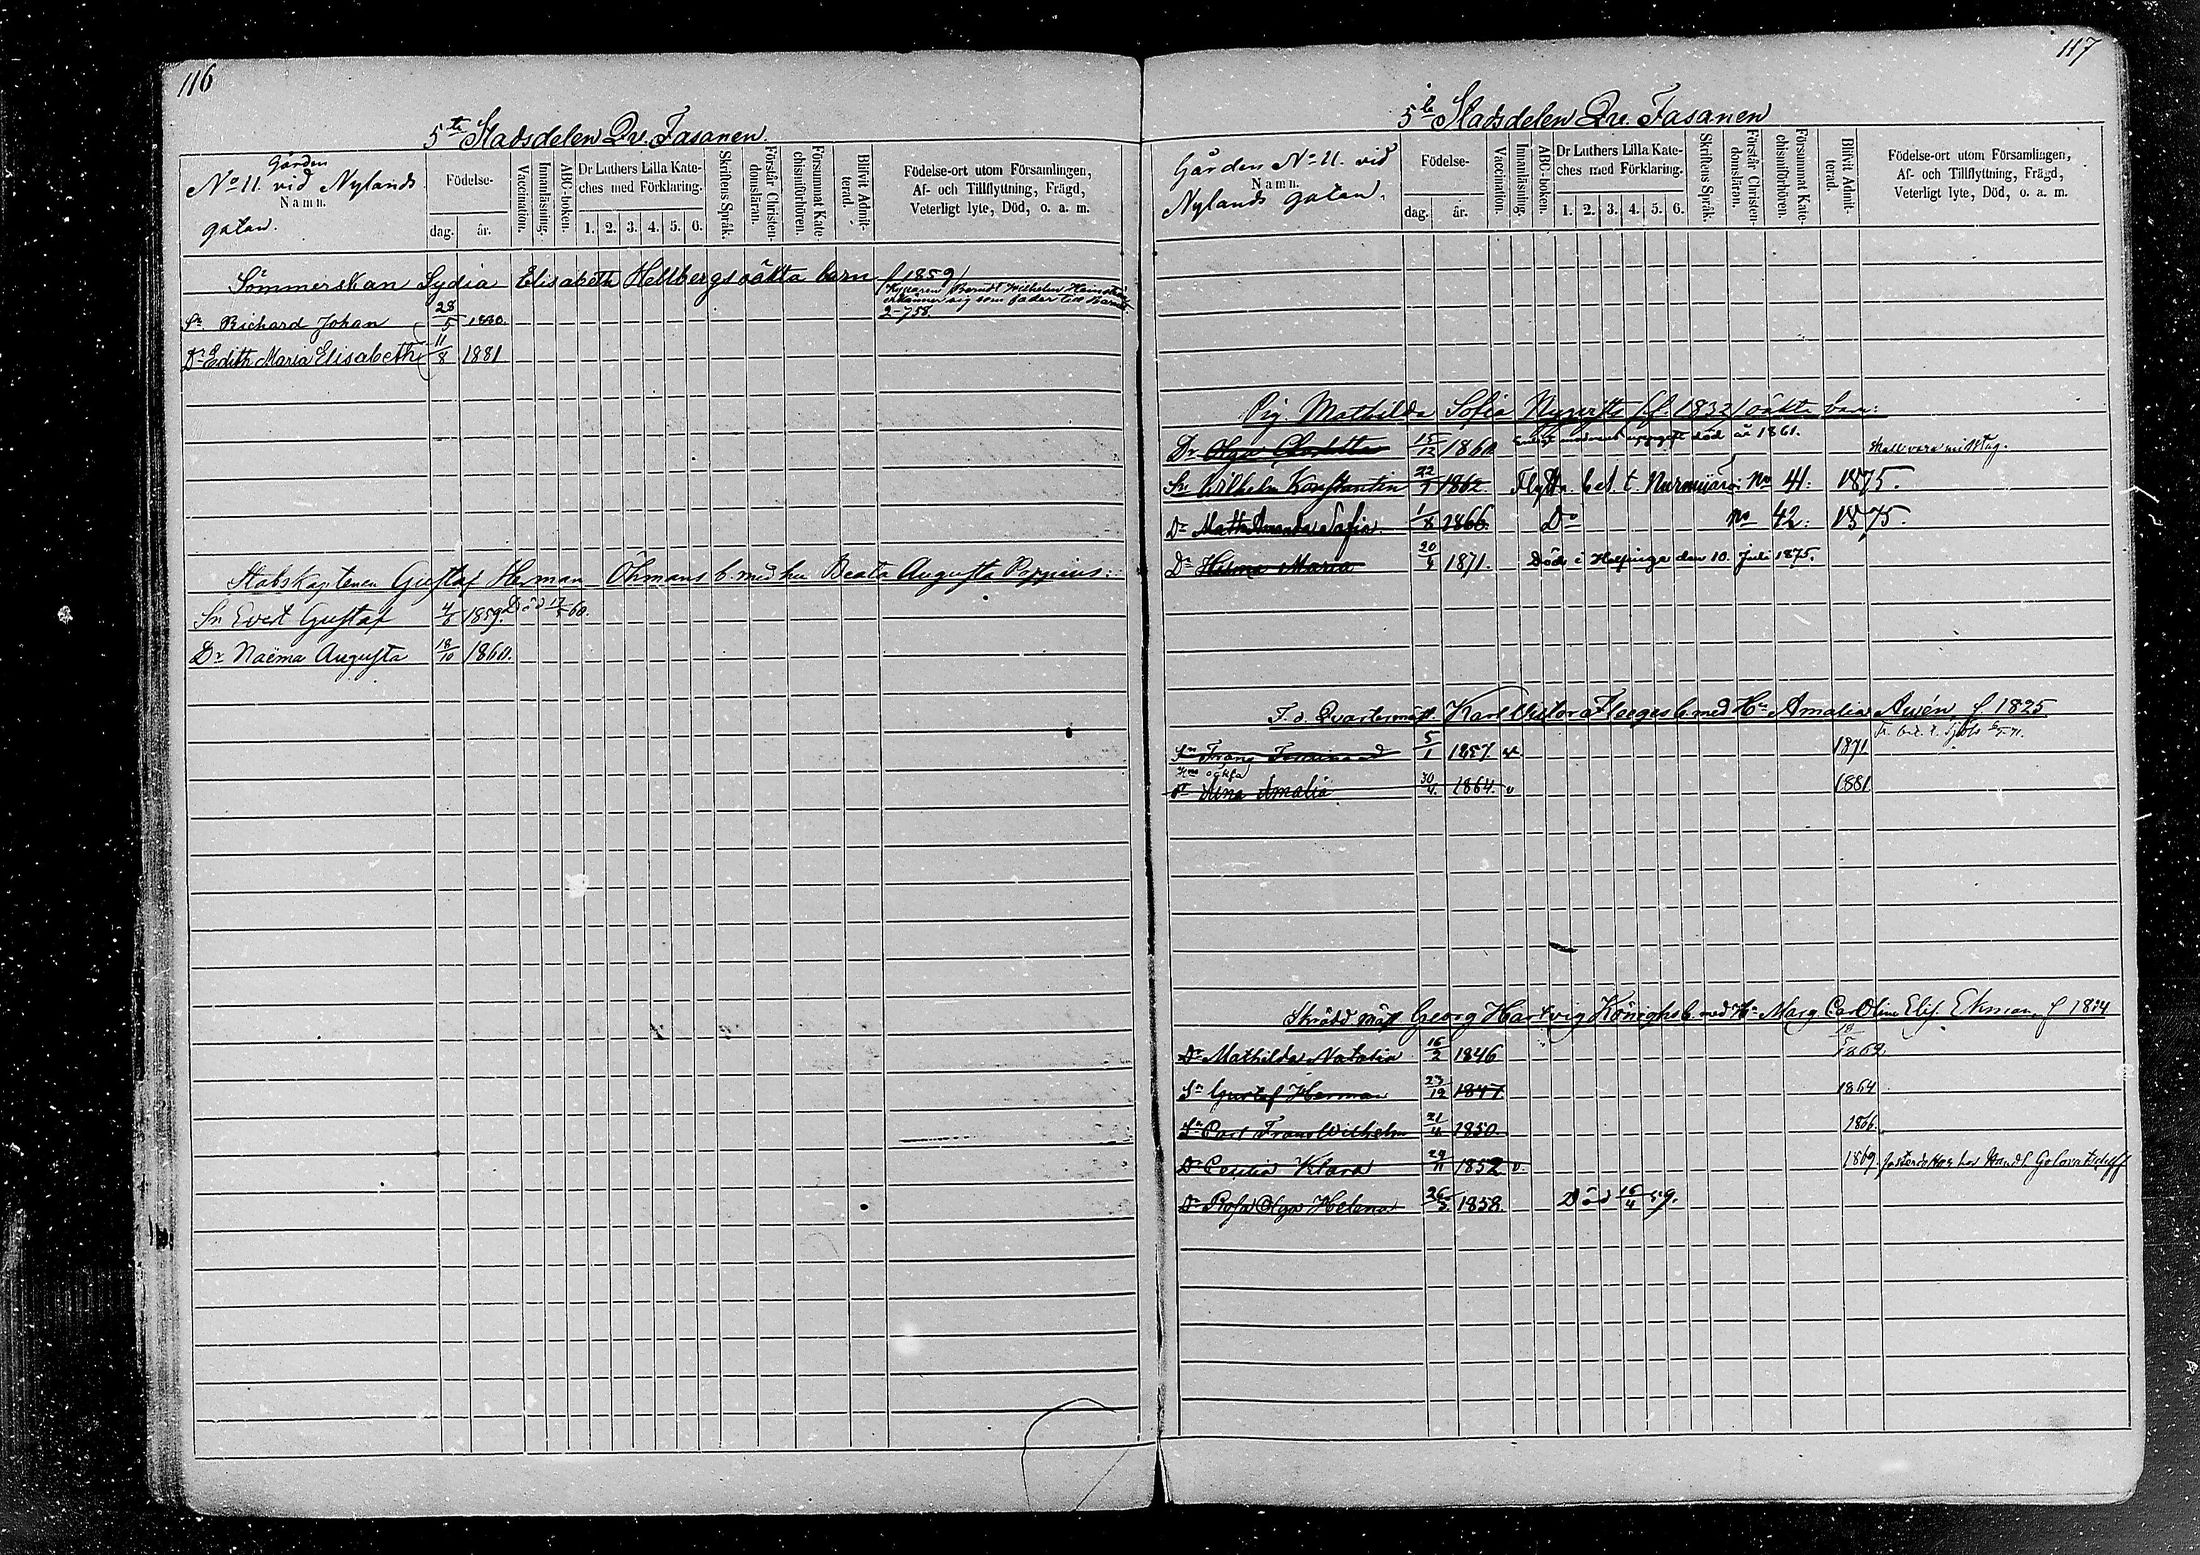 116
5te Stadsdelen Qv. Fasanen
Gården
No 11. vid Nylands
Namn.
gatan.
Födelse-
dag.
år.
Vaccination.
Innanläsning.
ABC-boken.
Dr Luthers Lilla Kate-
ches med Förklaring.
1. 2. 3. 4. 5. 6.
Skriftens Språk.
Förstår Christen-
domsläran.
Försummat Kate-
chismiförhören.
Blifvit Admit-
terad.
Födelse-ort utom Församlingen,
Af- och Tillflyttning, Frägd,
Veterligt lyte, Död, o. a. m.
Sömmerskan Lydia Elisabeth Hellbergs oäkta barn f 1859/
Kyparen Berndt Wilhelm
erkänner sig som fader till Barnet
Sn Richard Johan 28/5 1880. 2-758
Dr Edith Maria Elisabeth 11/8 1881
Stabskaptenen Gustaf Herman Öhmans b. med hu Beata Augusta Pippius:
Sn Evert Gustaf 1859. Död 60.
Dr Naëma Augusta 18/10 1860.
117
5te Stadsdelen Qv. Fasanen
Gården No 11. vid
Namn.
Nylands gatan.
Födelse-
dag.
år.
Vaccination.
Innanläsning.
ABC-boken.
Dr Luthers Lilla Kate-
ches med Förklaring.
1. 2. 3. 4. 5. 6.
Skriftens Språk.
Förstår Christen-
domsläran.
Försummat Kate-
chismiförhören.
Blifvit Admit-
terad.
Födelse-ort utom Församlingen,
Af- och Tillflyttning, Frägd,
Veterligt lyte, Död, o. a. m.
Pig. Mathilda Sofia (f. 1832) oäkta barn:
Dr Olga Charlotta 15/12 1860 Enligt modrens uppgift död år 1861.
Sn Wilhelm Konstantin 22/9 1862. Flytt. bet. t. Nurmijärvi No 41: 1875.
Dr Math. Amanda Sofia. 1/8 1866 Do No 42: 1875.
Dr Hilma Maria 20/4 1871. Död i Helsinge den 10. Juli 1875.
F. d. Qvartermäst. Karl Viktor Fleeges b. med Hu Amalia Awén f 1825
Sn Frans Ferdinand 5/1 1857. v. 1871
Dr Alna Amalia 30/4. 1864. v 1881
Skrädd. mäst Georg Hartvig Könighs b. med Hu Marg Carolina Elis. Ekman f 1824
Dr Mathilda Natalia 16/2 1846 1862.
Sn Gustaf Herman 23/12 1847 1864
Sn Carl Frans Wilhelm 21/4 1850. 1866.
Dr Cecilia Klara 29/11 1852 v. 1869. fosterdotter hos Handl. Golovatscheff
Dr Rosa Olga Helena 26/3 1858. Död 16/4 59.